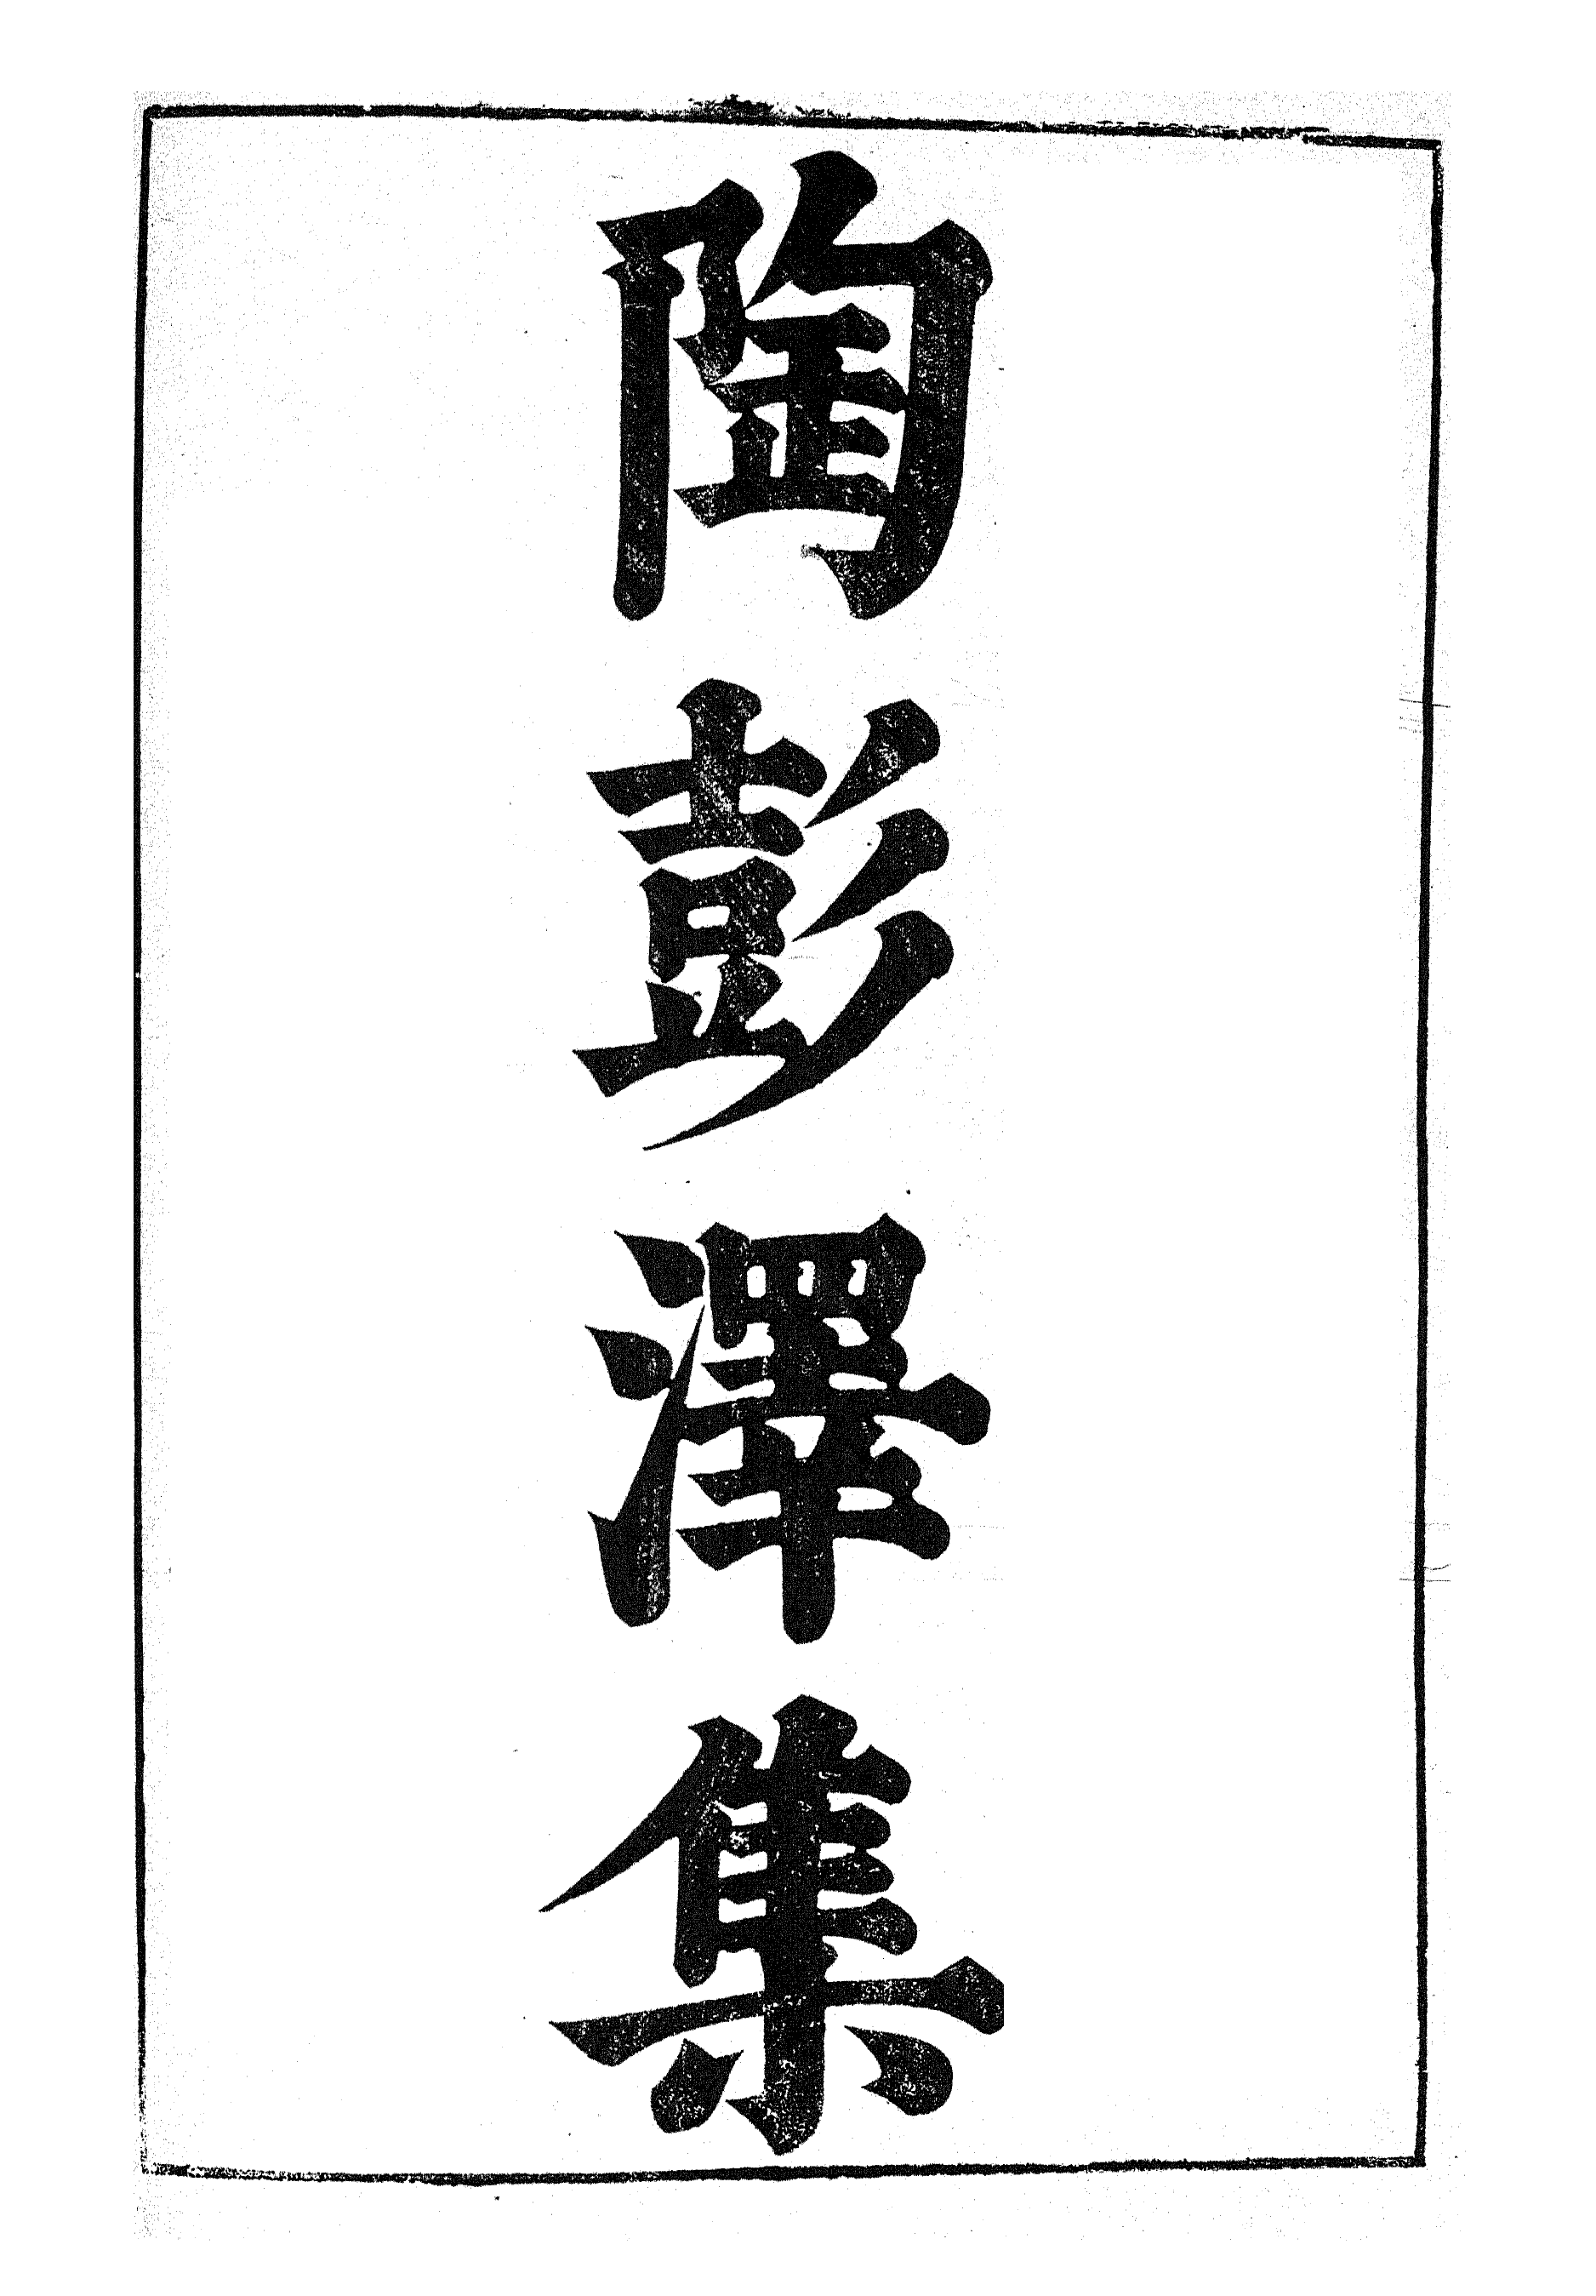 陶彭澤集